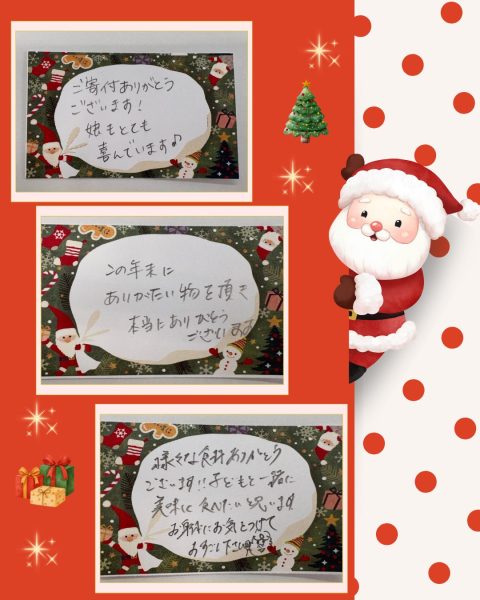 ご寄付ありがとう
ございます！
娘もとても
喜んでいます♪
この年末に
ありがたい物を頂き
本当にありがとう
ございます
様々な食料ありがとう
ございます!!子どもと一緒に
美味しく食べたいと思います
お身体にお気をつけて
お過ごし下さい